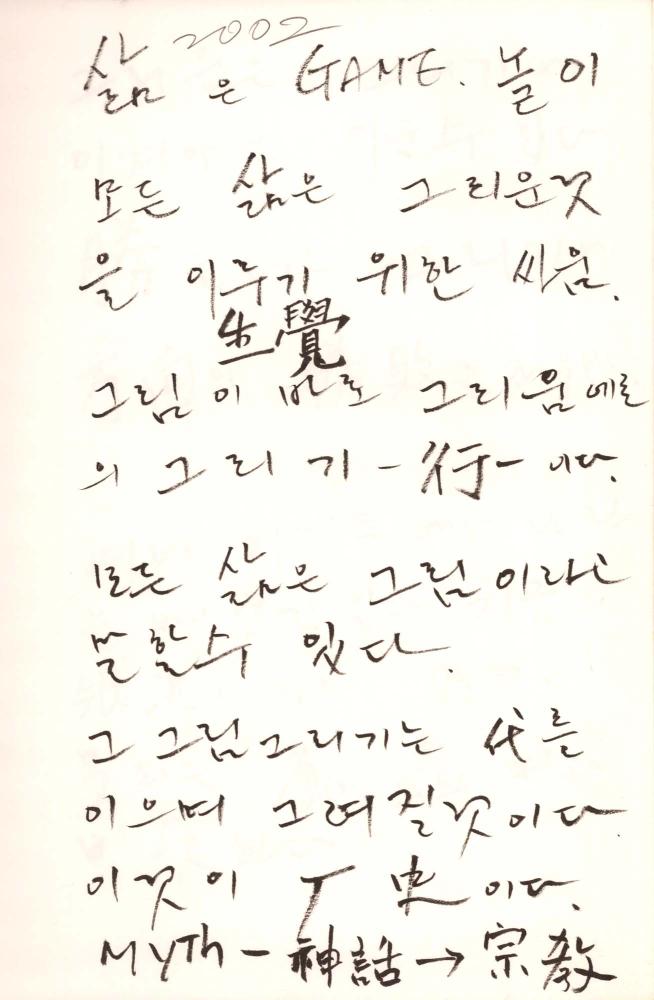 2002
삶은 GAME. 놀이
모든 삶은 그리운것
을 이루기 위한 싸움.
生覺
그림이 바로 그리움에로
의 그리기-行-이다.
모든 삶은 그림이라고
말할수 있다.
그 그림그리기는 代를
이으며 그려질것이다
이것이 史이다.
MYTh-神話→宗教